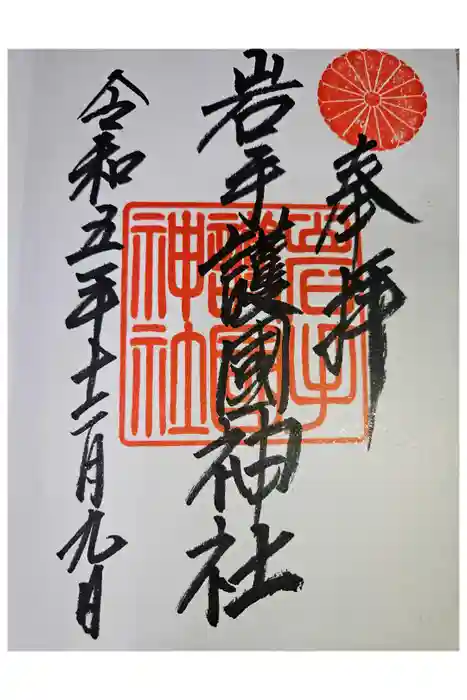 奉拝
岩手護國神社
令和五年十二月九日
岩手
護國
神社